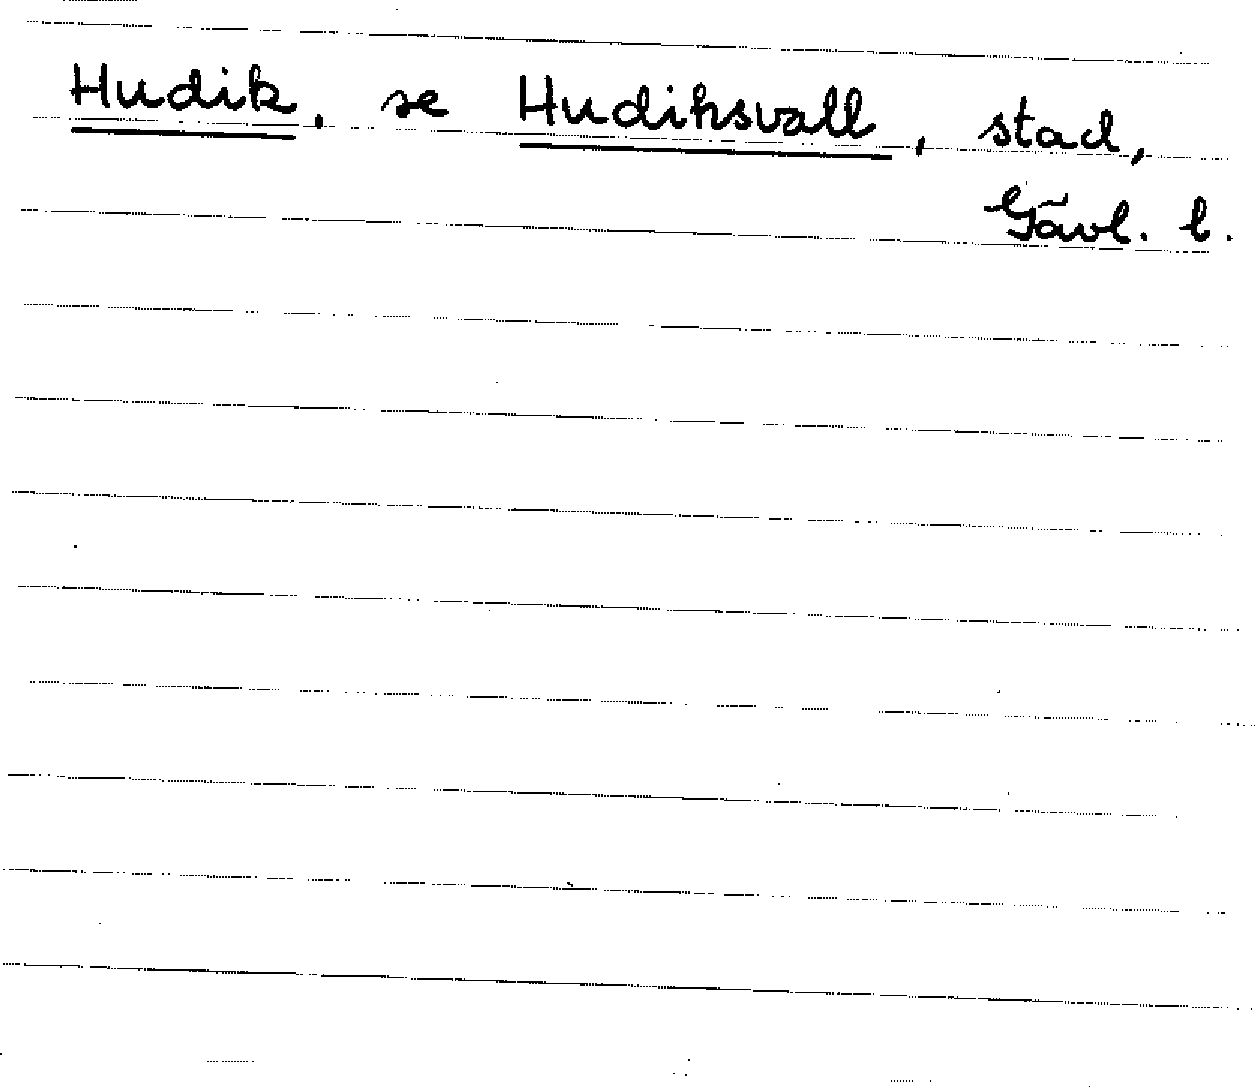 Hudik, se Hudiksvall, stad,
Gävl. l.